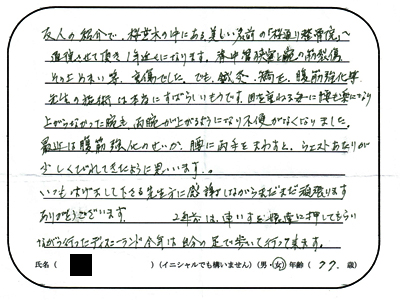 友人の紹介で、桜並木の中にある美しい名前の「桜通り整骨院」へ
通院させて頂き1年近くになります。脊中管狭窄と腕の筋裂傷
その上片れい等、重傷でした。でも、鍼灸、矯正、腹筋強化等
先生の施術は本当にすばらしいものです。回を重ねる毎に腰も楽になり
上がらなかった腕も、両腕が上がるようになり不便がなくなりました。
最近は腹筋強化のせいか、腰に両手をまわすと、ウェストあたりが
少しくびれてきたように思います‥。
いつもはげましして下さる先生方に感謝しながらまだまだ頑張ります
ありがとうございます。 2年前は、車いすを娘達に押してもらい
ながら行ったディズニーランド今年は自分の足で歩いて行って来ます。
氏名( )(イニシャルでも構いません)(男・女)年齢(77.歳)